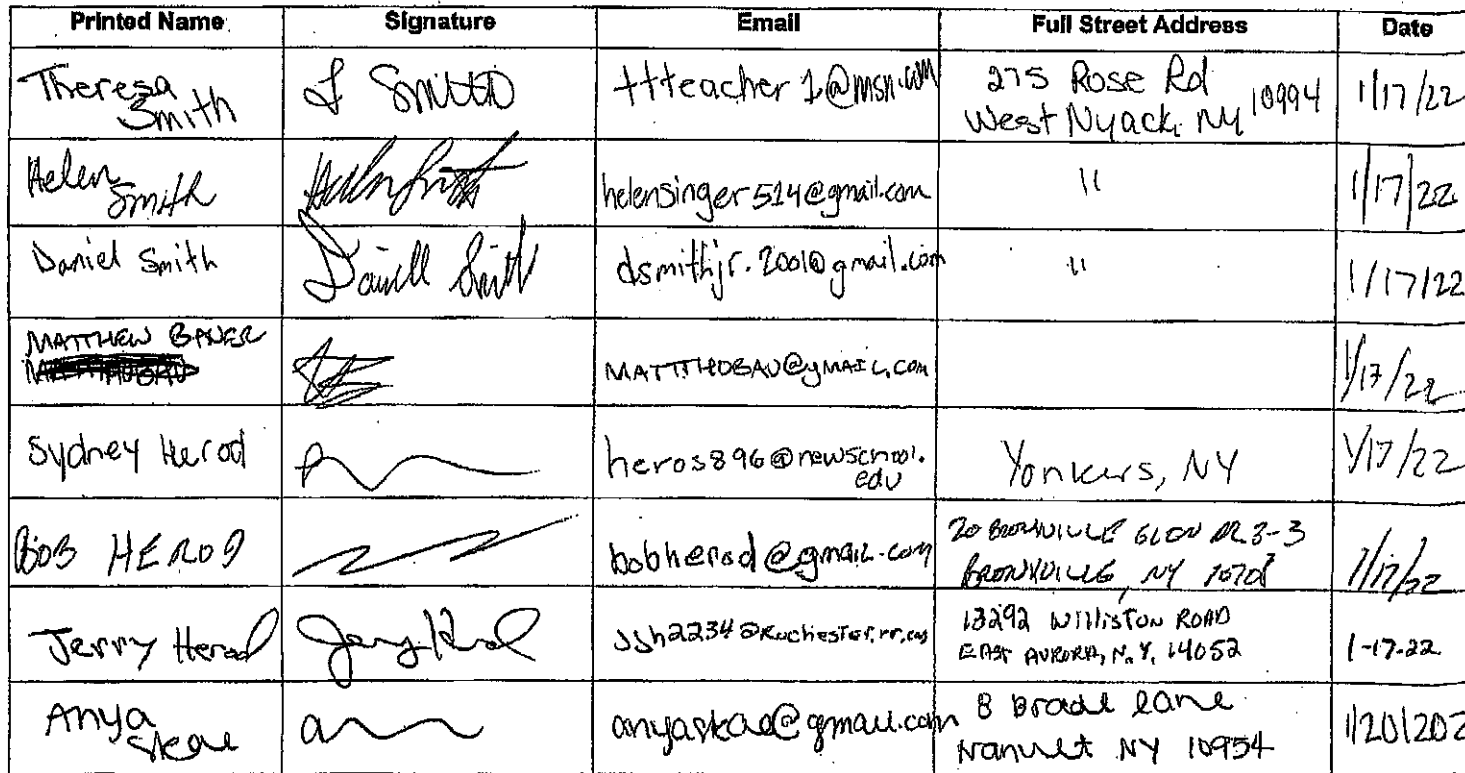 Printed Name Signature Email Full Street Address Date
Theresa Smith T Smith ttteacher1@msn.com 275 Rose Rd
West Nyack, NY 10994 1/17/22
Helen Smith Helen Smith helensinger514@gmail.com " 1/17/22
Daniel Smith Daniel Smith dsmithjr.2001@gmail.com " 1/17/22
MATTHEW 1/17/22
Sydney Herod heros896@newschool.
edu Yonkers, NY 1/17/22
BOB HEROD bobherod@gmail.com 20
BRONXVILLE, NY 10708 1/17/22
Jerry Herod Jerry Herod jsh2234@Rochester.rr.com 13292 Williston ROAD
EAST AURORA, N.Y. 14052 1-17-22
Anya 8 Lane
Nanuet NY 10954 1/20/202